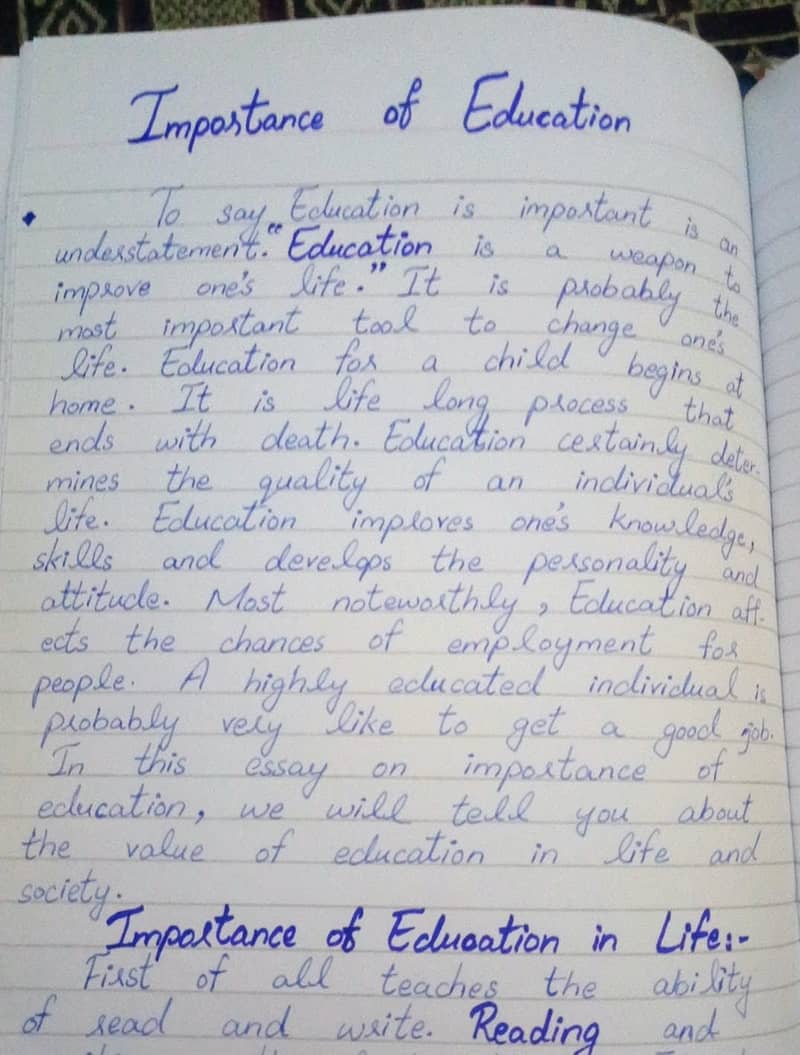 Importance of Education
To say Education is important is an
understatement. "Education is a weapon to
improve one's life." It is probably the
most important tool to change one's
life. Education for a child begins at
home. It is life long process that
ends with death. Education certainly deter-
mines the quality of an individual's
life. Education improves one's knowledge,
skills and develops the personality and
attitude. Most noteworthly, Education aff-
ects the chances of employment for
people. A highly educated individual is
probably very like to get a good job.
In this essay on importance of
education, we will tell you about
the value of education in life and
society.
Importance of Education in Life:-
First of all teaches the ability
of read and write. Reading and